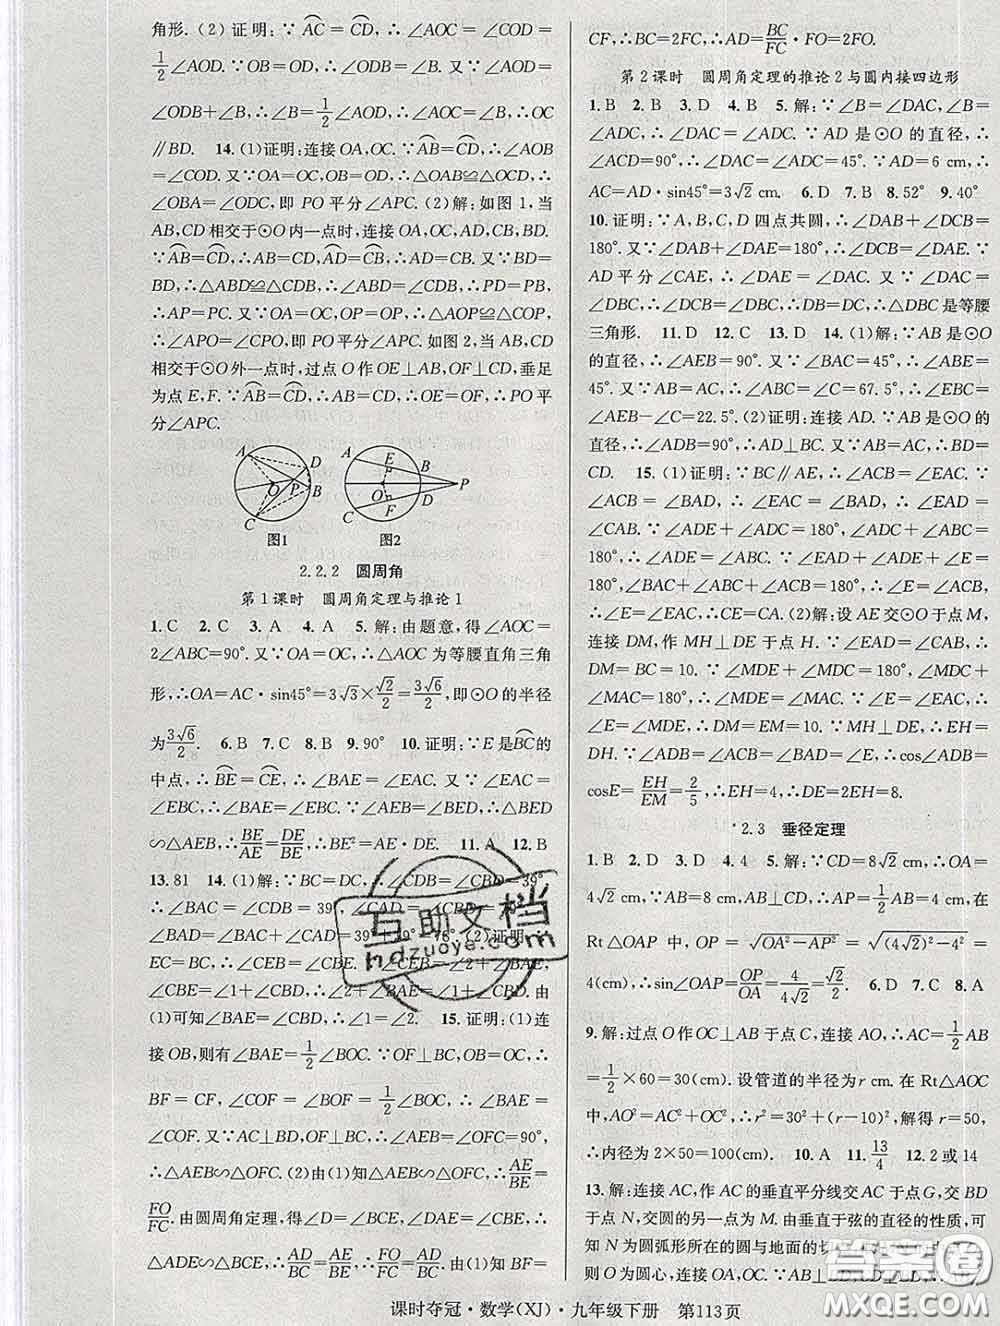 角形. (2) 证明:∵AC=CD,∴∠AOC=∠COD=
1/2∠AOD.∵OB=OD,∴∠B=∠D.又∵∠AOD=
∠ODB+∠B,∴∠B=1/2∠AOD,∴∠AOC=∠B,∴OC
∥BD. 14. (1)证明:连接OA,OC.∵AB=CD,∴∠AOB
=∠COD.又∵OA=OC,OB=OD,∴△OAB≌△OCD,∴
∠OBA=∠ODC,即 PO平分∠APC. (2)解:如图 1,当
AB,CD相交于⊙O内一点时,连接OA,OC,AD,CB,BD.
∵AB=CD,∴AD=BC,∴∠ABD=∠CDB.又∵AB=
BD,∴△ABD≌△CDB,∴∠ABD=∠CDB,∴PD=PB,∴
AP=PC.又∵OA=OC,OP=OP,∴△AOP≌△COP,
∴∠APO=∠CPO,即 PO 平分∠APC.如图 2,当 AB,CD
相交于⊙O外一点时,过点O作OE⊥AB,OF⊥CD,垂足
为点 E,F.∵AB=CD,∴AB=CD,∴OE=OF,∴PO 平
分∠APC.
A D O P B C
图1
A E B O P D C F
图2
2.2.2 圆周角
第 1 课时 圆周角定理与推论 1
1. C 2. C 3. A 4. A 5. 解:由题意,得∠AOC=
2∠ABC=90°.又∵OA=OC,∴△AOC为等腰直角三角
形,∴OA=AC·sin45°=3√3×√2/2=3√6/2,即⊙O的半径
为3√6/2. 6. B 7. C 8. B 9. 90° 10. 证明:∵E是BC的
中点,∴BE=CE,∴∠BAE=∠CAE.又∵∠CAE=
∠EBC,∴∠BAE=∠EBC.∵∠AEB=∠BED,∴△BED
∽△AEB,∴BE/AE=DE/BE,∴BE²=AE·DE. 11. A 12. B
13. 81 14. (1)解:∵BC=DC,∴∠CDB=∠CBD=39°.
∴∠BAC=∠CDB=39°,∠CAD=∠CBD=39°,∴
∠BAD=∠BAC+∠CAD=39°+39°=78°. (2)证明:∵
EC=BC,∴∠CEB=∠CBE.
∠CBE=∠1+∠CBD,∴∠2+∠BAE=∠1+∠CBD.由
(1)可知∠BAE=∠CBD,∴∠1=∠2. 15. 证明:(1)连
接OB,则有∠BAE=1/2∠BOC.∵OF⊥BC,OB=OC,∴
BF=CF,∠COF=∠BOF=1/2∠BOC,∴∠BAE=
∠COF.又∵AC⊥BD,OF⊥BC,∴∠AEB=∠OFC=90°,
∴△AEB∽△OFC. (2)由(1)知△AEB∽△OFC,∴AE/BE=
FO/FC.由圆周角定理,得∠D=∠BCE,∠DAE=∠CBE,∴
∴△ADE∽△BCE,∴AD/BC=AE/BE,∴FO/FC=AD/BC.由(1)知BF=
CF,∴BC=2FC,∴AD=BC/FC·FO=2FO.
第 2 课时 圆周角定理的推论 2 与圆内接四边形
1. B 2. B 3. D 4. B 5. 解:∵∠B=∠DAC,∠B=
∠ADC,∴∠DAC=∠ADC.∵AD 是⊙O的直径,∴
∠ACD=90°,∴∠DAC=∠ADC=45°.∵AD=6 cm,∴
AC=AD·sin45°=3√2 cm. 6. D 7. B 8. 52° 9. 40°
10. 证明:∵A,B,C,D 四点共圆,∴∠DAB+∠DCB=
180°.又∵∠DAB+∠DAE=180°,∴∠DCB=∠DAE.∵
AD平分∠CAE,∴∠DAE=∠DAC.又∵∠DAC=
∠DBC,∴∠DCB=∠DBC,∴DB=DC,∴△DBC是等腰
三角形. 11. D 12. C 13. D 14. (1)解:∵AB是⊙O
的直径,∴∠AEB=90°.又∵∠BAC=45°,∴∠ABE=
45°.又∵AB=AC,∴∠ABC=∠C=67.5°,∴∠EBC=
∠AEB-∠C=22.5°. (2)证明:连接 AD.∵AB是⊙O的
直径,∴∠ADB=90°,∴AD⊥BC.又∵AB=AC,∴BD=
CD. 15. (1)证明:∵BC∥AE,∴∠ACB=∠EAC.∵
∠ACB=∠BAD,∴∠EAC=∠BAD,∴∠EAD=
∠CAB.∵∠ADE+∠ADC=180°,∠ABC+∠ADC=
180°,∴∠ABC=∠ADE.∵∠EAD+∠ADE+∠E=
180°,∠BAC+∠ABC+∠ACB=180°,∴∠E=∠ACB,
∴∠E=∠EAC,∴CE=CA. (2)解:设 AE交⊙O于点 M,
连接 DM,作 MH⊥DE 于点 H.∵∠EAD=∠CAB,∴
DM=BC=10.∵∠MDE+∠MDC=180°,∠MDC+
∠MAC=180°,∴∠MDE=∠MAC.∵∠E=∠CAE,∴
∠E=∠MDE,∴DM=EM=10.∵MH⊥DE,∴EH=
DH.∵∠ADB=∠ACB=∠CAE=∠E,∴cos∠ADB=
cosE=EH/EM=2/5,∴EH=4,∴DE=2EH=8.
2.3 垂径定理
1. B 2. D 3. D 4. 4 5. 解:∵CD=8√2 cm,∴OA=
4√2 cm.∵AB=8 cm,CD⊥AB,∴AP=1/2AB=4 cm.在
Rt△OAP 中,OP=√(OA²-AP²)=√((4√2)²-4²)=
4(cm),∴sin∠OAP=OP/OA=4/(4√2)=√2/2. 6. D 7. D 8. A
9. 解:过点 O 作 OC⊥AB 于点 C,连接 AO,∴AC=1/2AB
=1/2×60=30(cm).设管道的半径为r cm.在 Rt△AOC
中,AO²=AC²+OC²,∴r²=30²+(r-10)²,解得 r=50,
∴内径为 2×50=100(cm). 10. A 11. 13/4 12. 2或 14
13. 解:连接 AC,作 AC的垂直平分线交AC于点G,交 BD
于点 N,交圆的另一点为 M.由垂直于弦的直径的性质,可
知 N为圆弧形所在的圆与地面的切点
则 O为圆心,连接 OA,OC.∵AB⊥BD,CD⊥BD
课时夺冠·数学(XJ)·九年级下册 第113页
互助文档
hdzuoye.com
答案圈
MXQE.COM